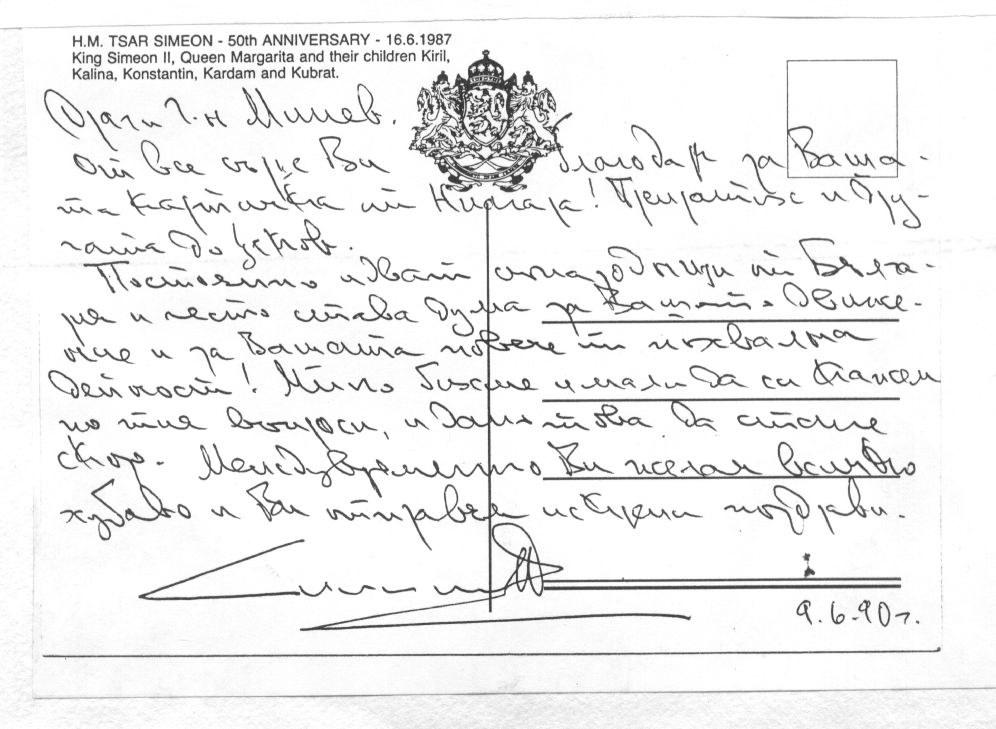 H.M. TSAR SIMEON - 50th ANNIVERSARY - 16.6.1987
King Simeon II, Queen Margarita and their children Kiril,
Kalina, Konstantin, Kardam and Kubrat.
Драги Г-н Минев.
От все сърце Ви благодаря за Ваша-
та картичка от Ниагара! Препратих и дру-
гата до
Постоянно идват от Бълга-
рия и често става дума за Вашето движе-
ние и за Вашата повече от похвална
дейност! бихме имали да си кажем
по тия въпроси, и да стане
скоро. Междувременно Ви желая всичко
хубаво и Ви отправям искрени поздрави.
9.6.90 г.